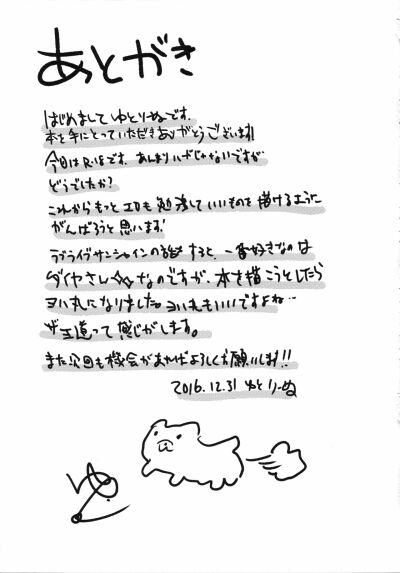 あとがき
はじめまして ゆとりーぬです。
本を手にとっていただきありがとうございます!
今回はR-18です。あんまりハードじゃないですが
どうでしたか?
これからもっとエロも勉強していいものを描けるように
がんばろうと思います!
ラブライブサンシャインの話をすると、一番好きなのは
ダイヤさん☆☆なのですが、本を描こうとしたら
ヨハ丸になりました。ヨハ丸もいいですよね…
ザ王道って感じがします。
また次回も機会があればよろしくお願いします!!
2016.12.31 ゆとりーぬ
ゆと